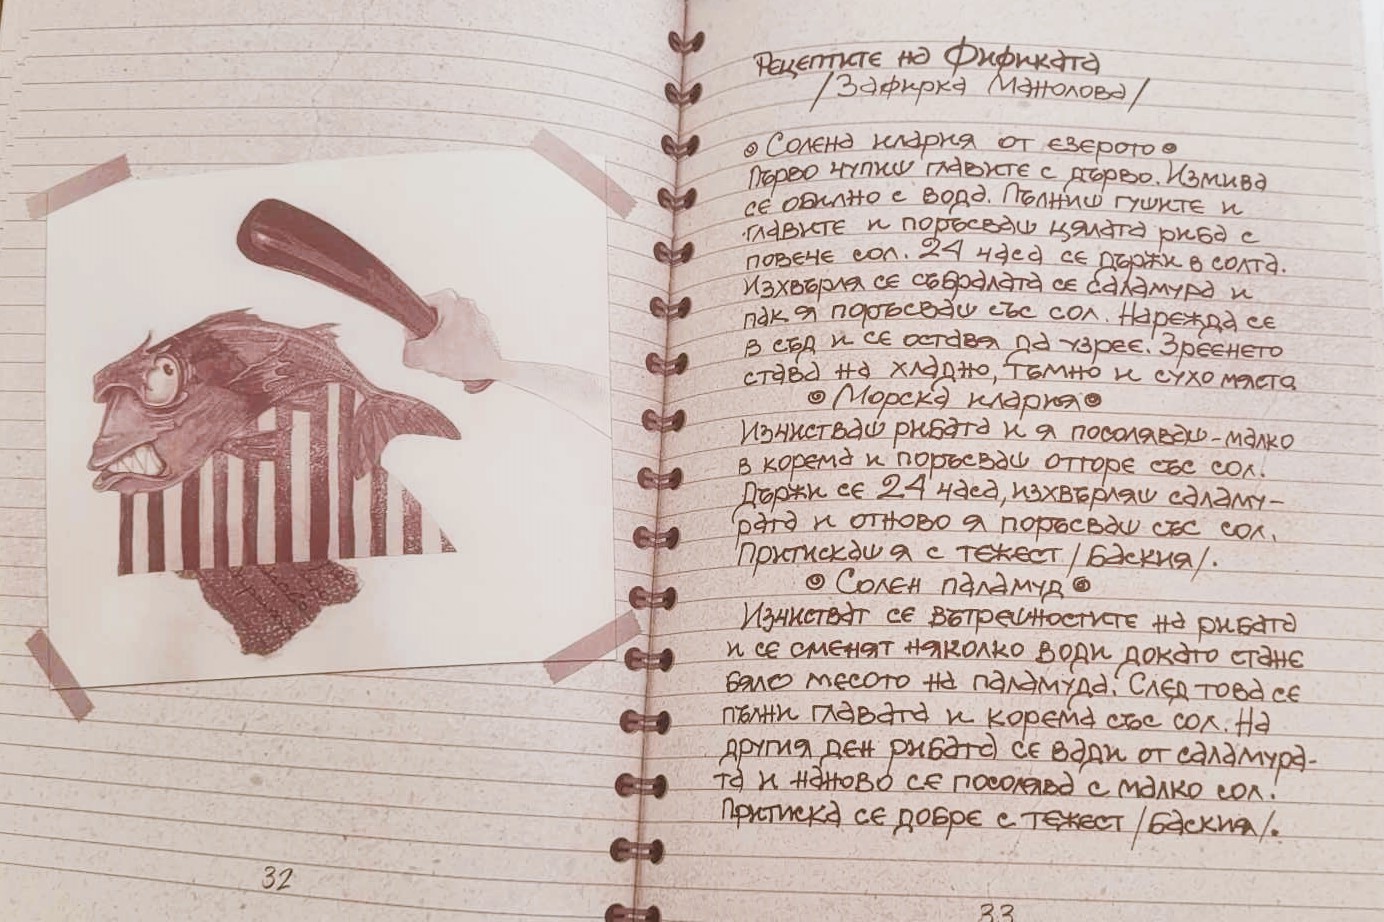 Рецептите на Фификата
/Зафирка Манолова/
Солена илария от езерото
Първо чупиш главите с дърво. Измива
се обилно с вода. Пълниш гушите и
главите и поръсваш цялата риба с
повече сол. 24 часа се държи в солта.
Изхвърля се събралата се саламура и
пак я поръсваш със сол. Нарежда се
в съд и се оставя да узрее. Зреенето
става на хладно, тъмно и сухо място
Морска илария
Изчистваш рибата и я посоляваш-малко
в корема и поръсваш отгоре със сол.
Държи се 24 часа, изхвърляш саламу-
рата и отново я поръсваш със сол.
Притискаш я с тежест /баския/.
Солен паламуд
Изчистват се вътрешностите на рибата
и се сменят няколко води докато стане
бяло месото на паламуда. След това се
пълни главата и корема със сол. На
другия ден рибата се вади от саламура-
та и наново се посолява с малко сол.
Притиска се добре с тежест /баския/.
32
33